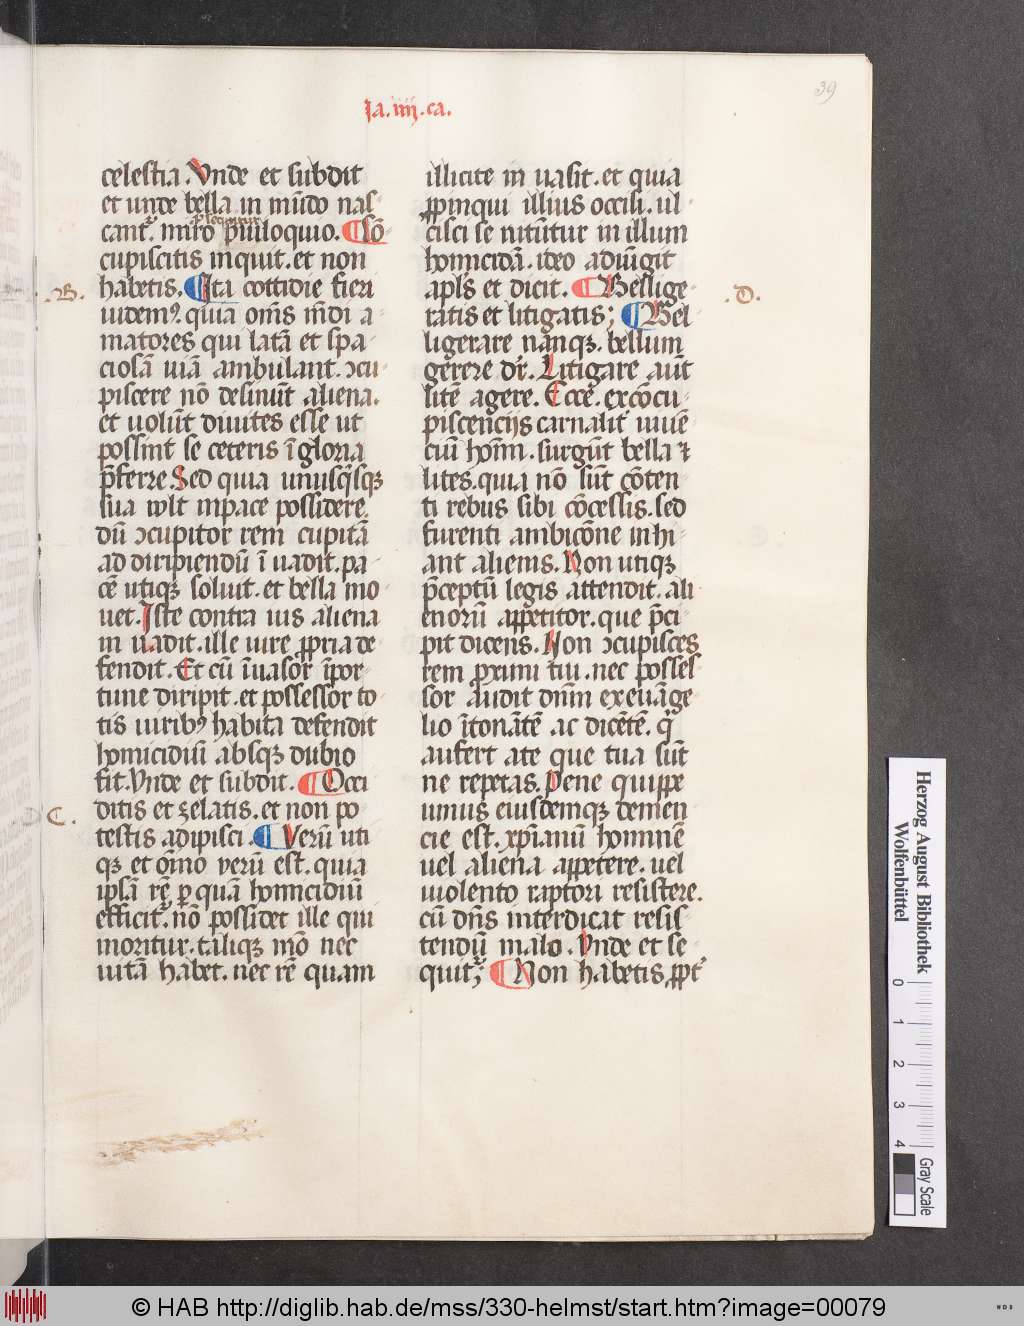 39
Ia.iiii.ca.
celestia. Vnde et subdit
et unde bella in mūdo nas
p̄sequitur
cant᷑. miro p̄miloquio. ¶ Cō
cupiscitis inquit. et non
.B. habetis. ¶ Ita cottidie fieri
uidem⁹. quia om̄s m̄di a
matores qui latā et spa
ciosā uiā ambulant. ↄcu
piscere nō desinūt aliena.
et uolūt diuites esse ut
possint se ceteris ī gloria
p̄ferre. Sed quia unusq̄sqꝫ
sua wlt inpace possidere.
dū ↄcupitor rem cupitā
ad diripiendū ī uadit. pa
cē utiqꝫ soluit. et bella mo
uet. Iste contra ius aliena
in uadit. ille iure ꝓpria de
fendit. Et cū īuasor īpor
tune diripit. et possessor to
tis uirib⁹ habita defendit
homicidiū absqꝫ dubio
fit. Vnde et subdit. ¶ Occi
C. ditis et zelatis. et non po
testis adipisci. ¶ Verū uti
qꝫ et oīno verū est. quia
ip̄sā rē ꝑ quā homicidiū
efficit᷑. nō possidet ille qui
moritur. taliqꝫ mō nec
uitā habet. nec rē quam
illicite in uasit. et quia
ꝓpinqui illius occisi. ul
cisci se nitūtur in illum
homicidā. ideo adiūgit
.D. apl̄s et dicit. ¶ Bellige
ratis et litigatis; ¶ Bel
ligerare nāqꝫ. bellum
gerere dr̄. Litigare aūt
litē agere. Ecce. excōcu
piscencijs carnalit᷑ uiuē
ciū hoīm. surgūt bella ⁊
lites. quia nō sūt cōten
ti rebus sibi cōcessis. sed
furenti ambicōne inhi
ant alienis. Non utiqꝫ
p̄ceptū legis attendit. ali
enorū appetitor. que p̄ci
pit dicens. Non ↄcupisces
rem proximi tui. nec posses
sor audit dn̄m exeuāge
lio ītonātē ac dicētē. q̄
aufert ate que tua sūt
ne repetas. Pene quippe
unius eiusdemqꝫ demen
cie est. xp̄ianū hominē
uel aliena appetere. uel
uiolento raptori resistere.
cū dn̄s interdicat resis
tendū malo. Vnde et se
quit᷑; ¶ Non habetis ꝓpt᷑
Herzog August Bibliothek
Wolfenbüttel
0 1 2 3 4
Gray Scale
© HAB http://diglib.hab.de/mss/330-helmst/start.htm?image=00079